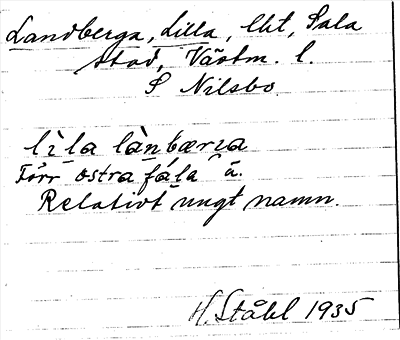 Landberga, Lilla, lht, Sala
stad, Västm. l.
S Nilsbo
lìla lànbærıa
Förr östra fåla ä.
Relativt ungt namn.
H. Ståhl 1935